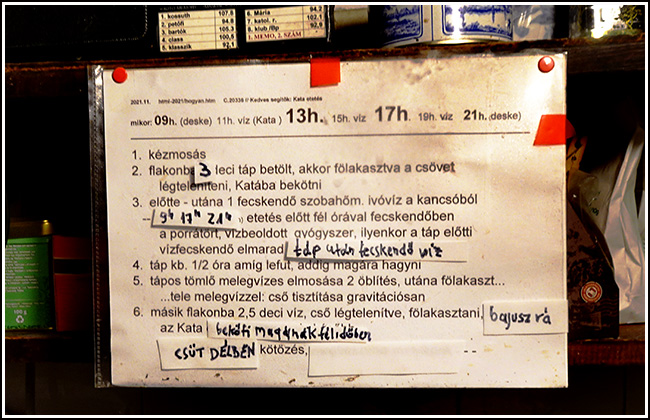 1. kossuth 107,8
2. petőfi 94,8
3. bartók 105,3
4. class 100,5
5. klasszik 92,1
6. Mária 94,2
7. katol. r. 102,1
8. klub /tlp 92,9
1. MEMO, 2. SZÁM
2021.11. html-2021/hogyan.htm C.20335 !! Kedves segítők: Kata etetés
mikor: 09h. (deske) 11h. víz (Kata ) 13h. 15h. víz 17h. 19h. víz 21h. (deske)
1. kézmosás
2. flakonba 3 leci táp betölt, akkor fölakasztva a csövet
légteleníteni, Katába bekötni
3. előtte - utána 1 fecskendő szobahőm. ivóvíz a kancsóból
-- 9h 17h 21h etetés előtt fél órával fecskendőben
a porrátört, vízbeoldott gyógyszer, ilyenkor a táp előtti
vízfecskendő elmarad táp után fecskendő víz
4. táp kb. 1/2 óra amíg lefut, addig magára hagyni
5. tápos tömlő melegvizes elmosása 2 öblítés, utána fölakaszt...
...tele melegvizzel: cső tisztitása gravitációsan
6. másik flakonba 2,5 deci víz, cső légtelenítve, fölakasztani, bajusz rá
az Kata beköti magának félidőben
CSÜT DÉLBEN kötözés, --